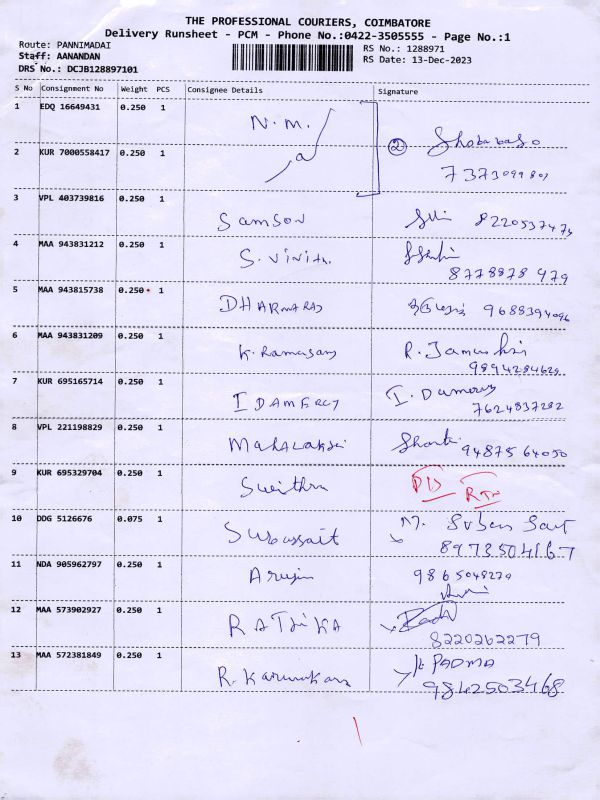 THE PROFESSIONAL COURIERS, COIMBATORE
Delivery Runsheet - PCM - Phone No.:0422-3505555 - Page No.:1
Route: PANNIMADAI
RS No.: 1288971
Staff: AANANDAN
RS Date: 13-Dec-2023
DRS No.: DCJB128897101
S No Consignment No Weight PCS Consignee Details Signature
1 EDQ 16649431 0.250 1 N.M.
2 KUR 7000558417 0.250 1 ②
7373099801
3 VPL 403739816 0.250 1 Samson 8220537474
4 MAA 943831212 0.250 1 S. Vinith.
8778878 479
5 MAA 943815738 0.250 1 DHARMARAJ 9688394096
6 MAA 943831209 0.250 1 K. Ramasamy R.
9894284629
7 KUR 695165714 0.250 1 I DAMERCY I. Damercy
7624837282
8 VPL 221198829 0.250 1 MAHALAKSHI 9487564050
9 KUR 695329704 0.250 1 D/S RTN
10 DDG 5126676 0.075 1 M.
8973504167
11 NDA 905962797 0.250 1 9865048279
12 MAA 573902927 0.250 1 RATHIKA
8220262279
13 MAA 572381849 0.250 1 R. Karunakara PADMA
9842503468